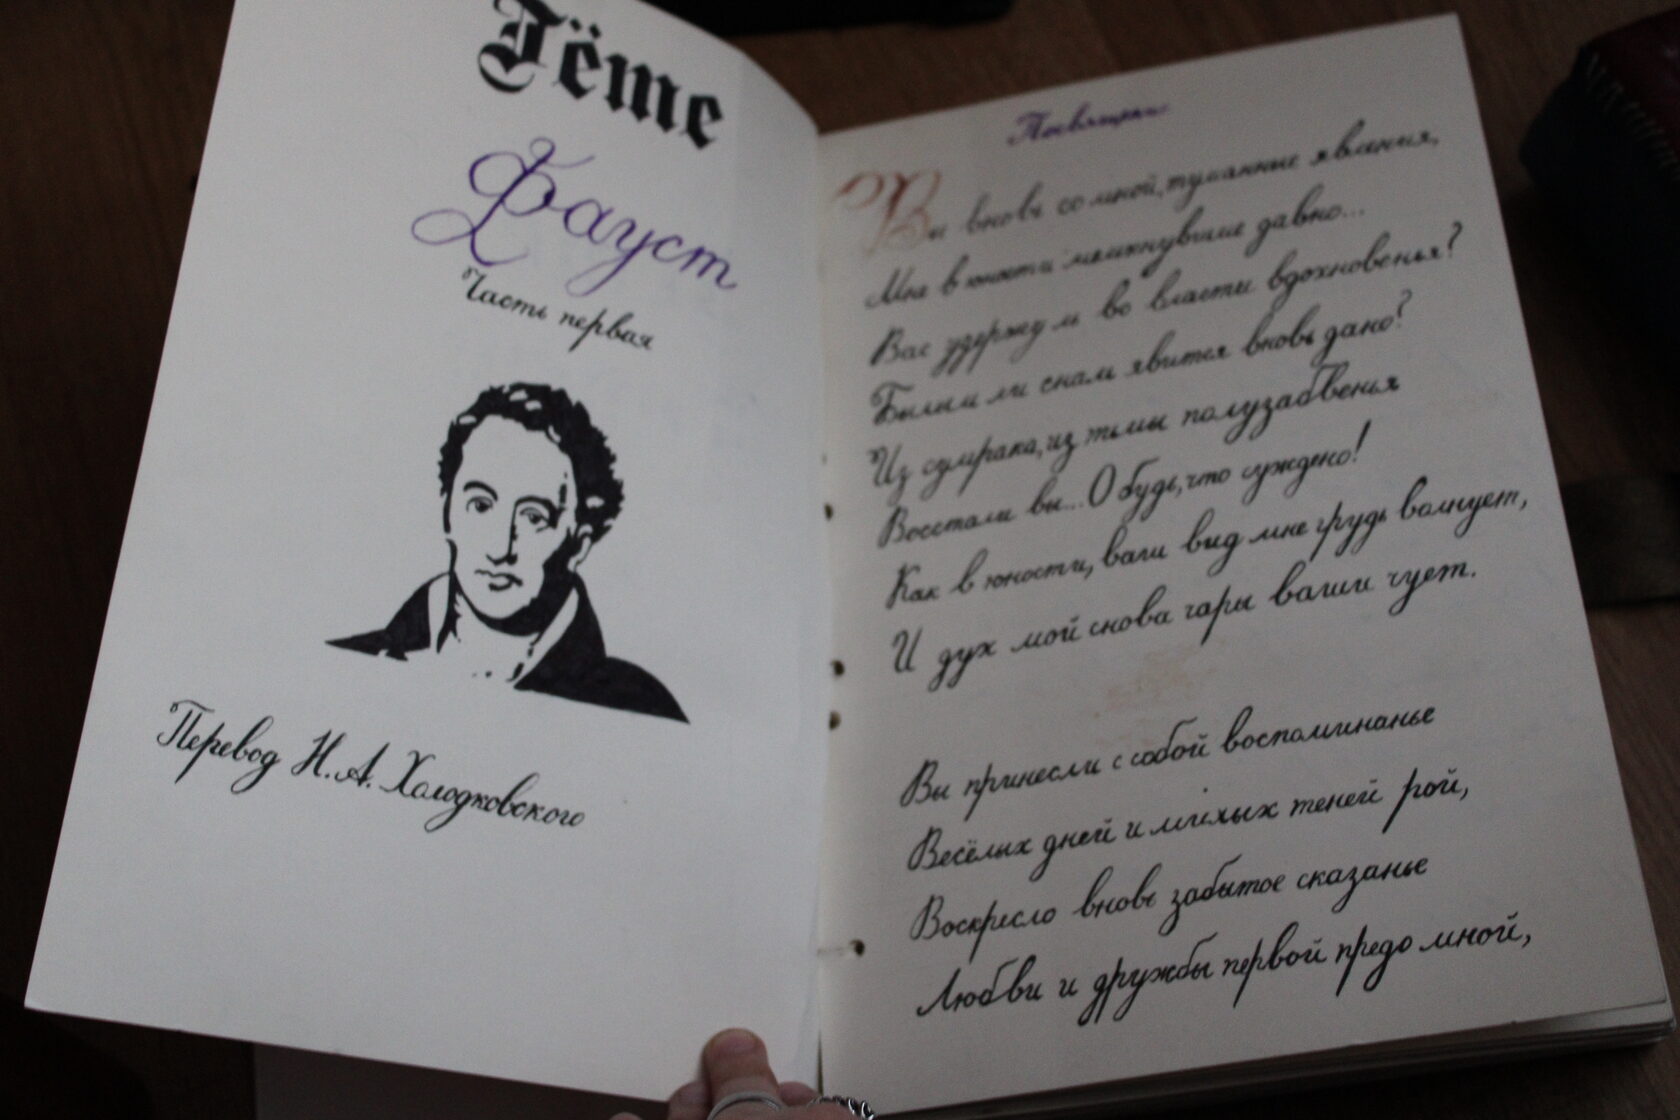 Гёте
Фауст
Часть первая
Перевод Н.А. Холодковского
Посвящение
Вы вновь со мной, туманные явления,
Мне в юности мелькнувшие давно...
Вас удержу ль во власти вдохновенья?
Былым ли снам явится вновь дано?
Из сумрака, из тьмы полузабвенья
Восстали вы... О будь, что суждено!
Как в юности, ваш вид мне грудь волнует,
И дух мой снова чары ваши чует.
Вы принесли с собой воспоминанье
Весёлых дней и милых теней рой,
Воскресло вновь забытое сказанье
Любви и дружбы первой предо мной,